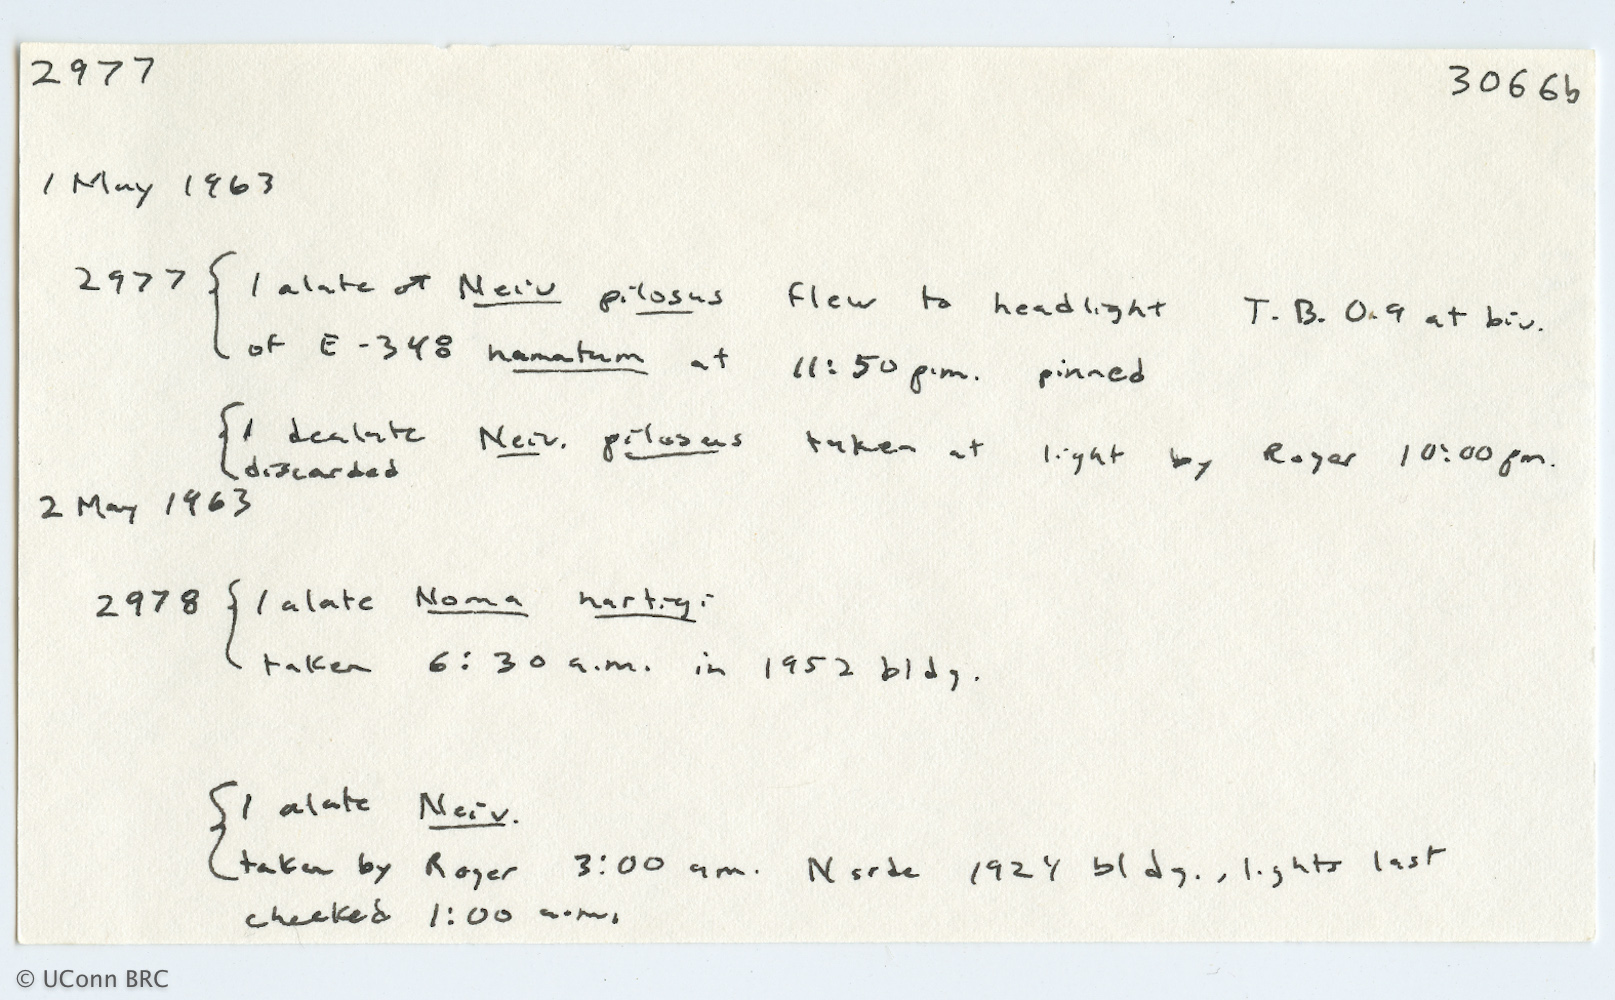 2977 3066b
1 May 1963
2977 { 1 alate ♂ Neiv pilosus flew to headlight T.B. 0.9 at biv.
of E-348 hamatum at 11:50 p.m. pinned
{ 1 dealate Neiv. pilosus taken at light by Roger 10:00 pm.
discarded
2 May 1963
2978 { 1 alate Noma hartigi
taken 6:30 a.m. in 1952 bldg.
{ 1 alate Neiv.
taken by Roger 3:00 am. N side 1924 bldg., lights last
checked 1:00 a.m.
© UConn BRC